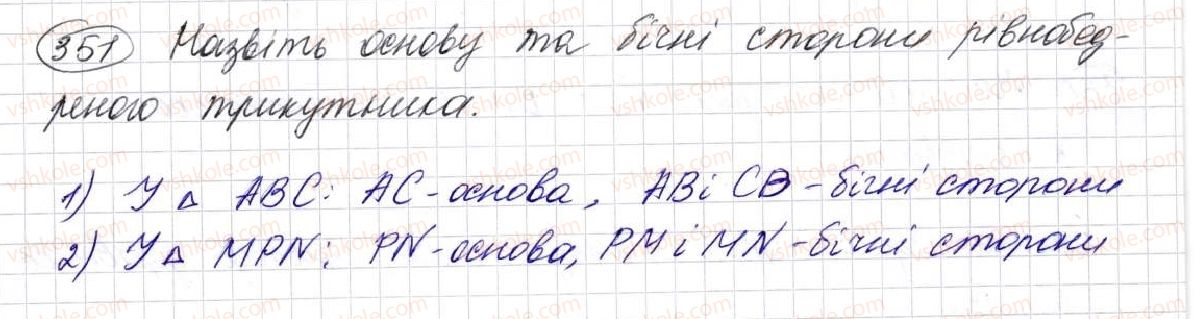 351 Назвіть основу та бічні сторони рівнобед-
реного трикутника.
1) У △ ABC: AC-основа, AB і CB - бічні сторони
2) У △ MPN: PN-основа, PM і MN-бічні сторони